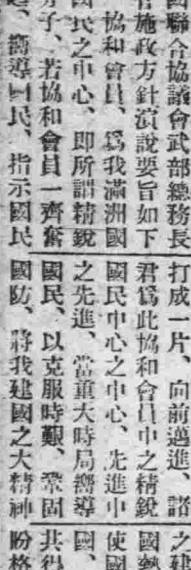 聯合協議會武部總務長
施政方針演說要旨如下
協和會員、爲我滿洲國
民之中心、卽所謂精銳
子、若協和會員一齊奮
、嚮導國民、指示國民
打成一片、向前邁進、諸
君爲此協和會員中之精銳
國民中心之中心、先進中
之先進、當重大時局嚮導
國民、以克服時艱、鞏固
國防、將我建國之大精神
之建
國
使國
國、
共得
盼格